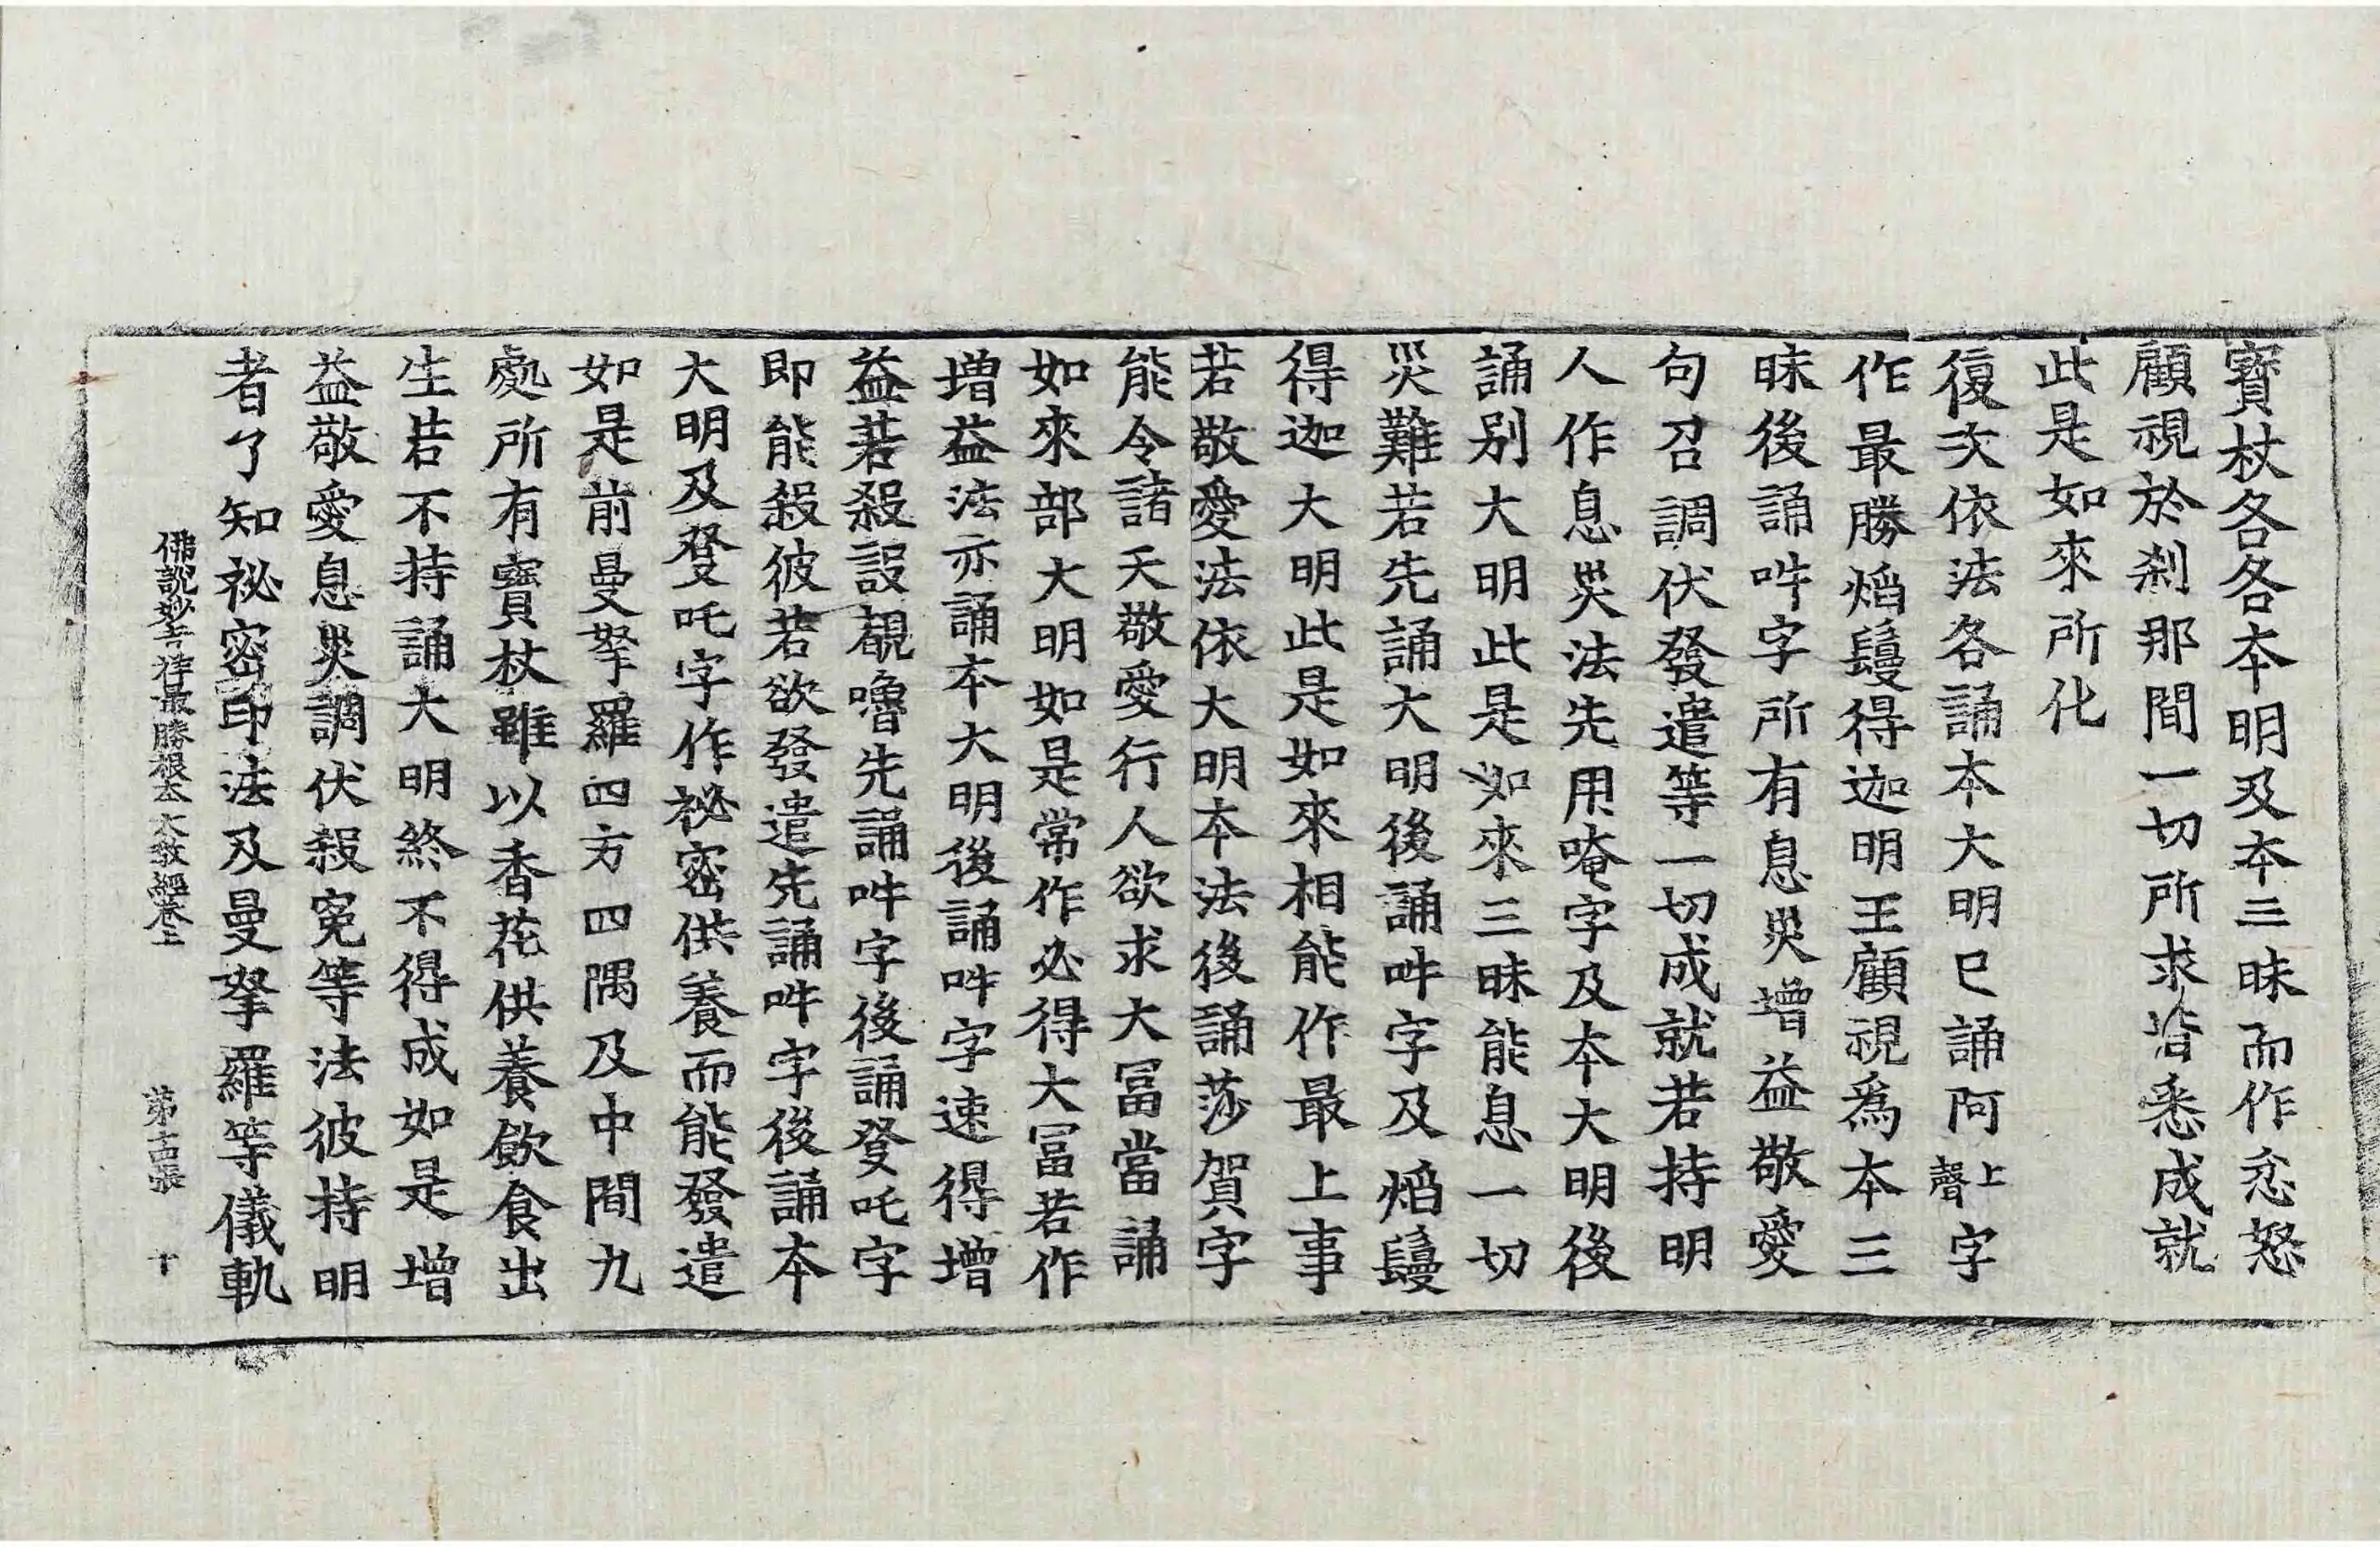 寶杖各各本明及本三昧而作忿怒
顧視於刹那間一切所求皆悉成就
此是如來所化
復次依法各誦本大明已誦阿上聲字
作最勝焰鬘得迦明王顧視爲本三
昧後誦吽字所有息災增益敬愛
句召調伏發遣等一切成就若持明
人作息災法先用唵字及本大明後
誦別大明此是如來三昧能息一切
災難若先誦大明後誦吽字及焰鬘
得迦大明此是如來相能作最上事
若敬愛法依大明本法後誦莎賀字
能令諸天敬愛行人欲求大冨當誦
如來部大明如是常作必得大冨若作
增益法亦誦本大明後誦吽字速得增
益若殺設覩嚕先誦吽字後誦癹吒字
即能殺彼若欲發遣先誦吽字後誦本
大明及癹吒字作祕密供養而能發遣
如是前曼拏羅四方四隅及中間九
處所有寶杖雖以香花供養飲食出
生若不持誦大明終不得成如是增
益敬愛息災調伏殺寃等法彼持明
者了知祕密印法及曼拏羅等儀軌
佛說妙吉祥最勝根本大教經卷上 第十古張 十